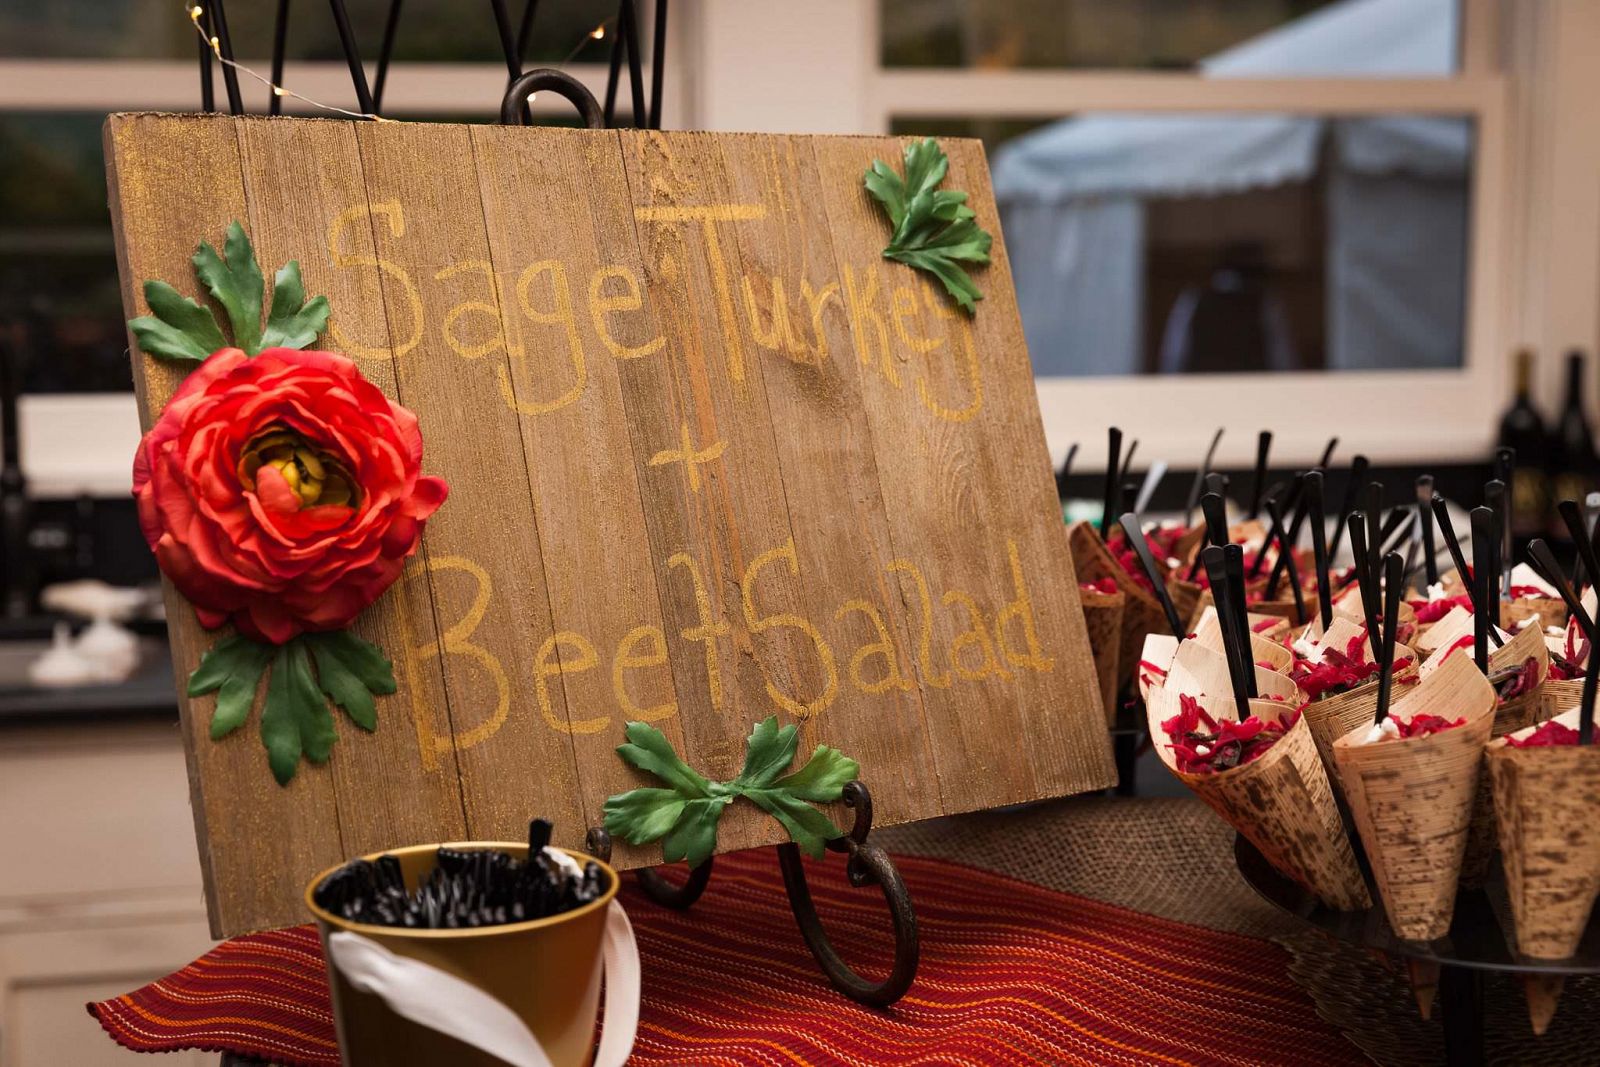 Sage Turkey
+
Beet Salad